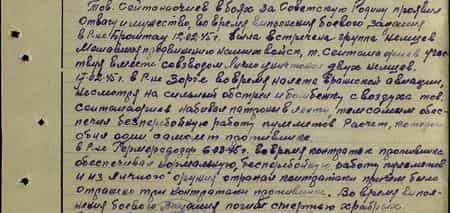 Тов. Сейтаногиев в боях за Советскую Родину проявил
отвагу и мужество, во время выполнения боевого задания
в р-не 12.02.45г. была встречена группа немцев
мешавшая продвижению наших войск, т. Сеитаногиев участ
твуя вместе со взводом лично уничтожил двух немцев.
17.02.45г. в р-не Зорге во время налета вражеской авиации,
несмотря на сильный обстрел и бомбежку с воздуха тов.
Сеитаногиев набивал патроны в ленты, тем самым обес-
печил бесперебойную работу пулеметов. Расчет, по
сбил один самолет противника.
в р-не 6.03.45г. во время контратак противника
обеспечивал нормальную, бесперебойную работу пулеметов
и из личного оружия отражал контратаки причем было
отражено три контратаки противника. Во время выпол-
нения боевого задания погиб смертью храбрых.